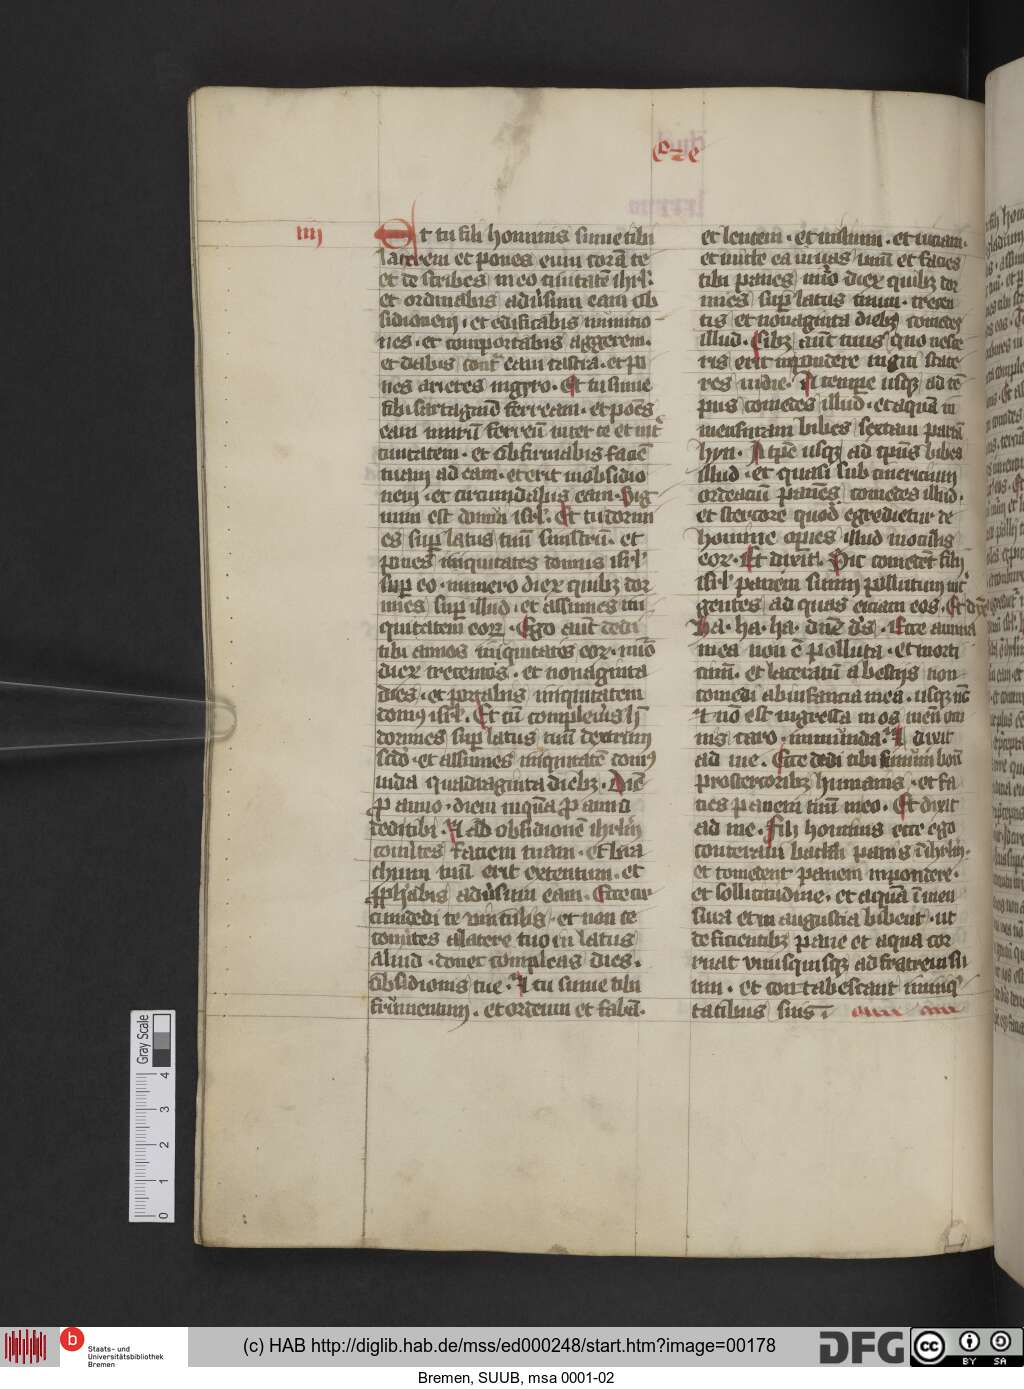 eze
iiij
Et tu fili hominis sume tibi
laterem et pones eum corā te
et describes in eo ciuitatē ihrl'm·
et ordinabis aduersum eam ob
sidionem · et edificabis munitio
nes · et comportabis aggerem ·
et dabis contͬ eam castra · et po
nes arietes in gyro · Et tu sume
tibi sartaginē ferream · et poēs
eam murū ferreū inter te et intͬ
ciuitatem · et obfirmabis faciē
tuam ad eam · et erit in obsidio
nem · et circumdabis eam · Sig
num est domui isrl' · Et tu dormi
es sup latus tuū sinistrū · et
pones iniquitates domus isrl'
sup eo · numero dierū quibz dor
mies sup illud · et assumes ini
quitatem eorū · Ego aūt dedi
tibi annos iniquitatis eorū · nūo
dierū trecentos · et nonaginta
dies · et portabis iniquitatem
domꝰ isrl' · Et cū compleueris h̄
dormies sup latus tuū dextrum
scdo · et assumes iniquitatē domꝰ
iuda quadraginta diebz · Diē
ꝑ anno · diem inquā ꝑ anno
dedi tibi · Et ad obsidionē ihrlm
conuertes faciem tuam · et bra
chium tuū erit extentum · et
ꝓphabis aduersum eam · Ecce cir
cumdedi te vinculis · et non te
conuertes a latere tuo in latus
aliud · donec compleas dies ·
obsidionis tue · Et tu sume tibi
frumentum · et ordeum et fabā ·
et lentem · et milium · et uiciam ·
et mitte ea in uas unū et facies
tibi panes nūo dierū quibz dor
mies sup latus tuum · trecen
tis et nonaginta diebz comedes
illud · Cibz aūt tuus quo uesce
ris erit in pondere uiginti state
res in die · A tempe usqz ad tē
pus comedes illud · et aquā in
mensuram bibes sextam partē
hyn · A tpe usqz ad tpus bibes
illud · et quasi subcinericium
ordeaciū panē comedes illud ·
et stercore quod egredietur de
homine operies illud in oculis
eorū · Et dixit · Sic comedēt filij
isrl' panem suum pollutum intͬ
gentes ad quas eiciam eos · Et dixi
Ha · ha · ha · dn̄e ds · Ecce anima
mea non ē polluta · et morti
cinū · et laceratū a bestijs non
comedi ab infancia mea · usqz nūc
et nō est ingressa in os meū om
nis caro · immunda · Et dixit
ad me · Ecce dedi tibi fimum boū
pro stercoribz humanis · et fa
cies panem tuū in eo · Et dixit
ad me · Fili hominis ecce ego
conteram baculū panis ī ihrlm ·
et comedent panem in pondere ·
et sollicitudine · et aquā ī men
sura et in angustia bibent · ut
deficientibz pane et aqua cor
ruat unusquisqz ad fratrem su
um · et contabescant in iniqͥ
tatibus suis
Gray Scale
0 1 2 3 4
b Staats- und
Universitätsbibliothek
Bremen
(c) HAB http://diglib.hab.de/mss/ed000248/start.htm?image=00178
DFG
cc BY SA
Bremen, SUUB, msa 0001-02